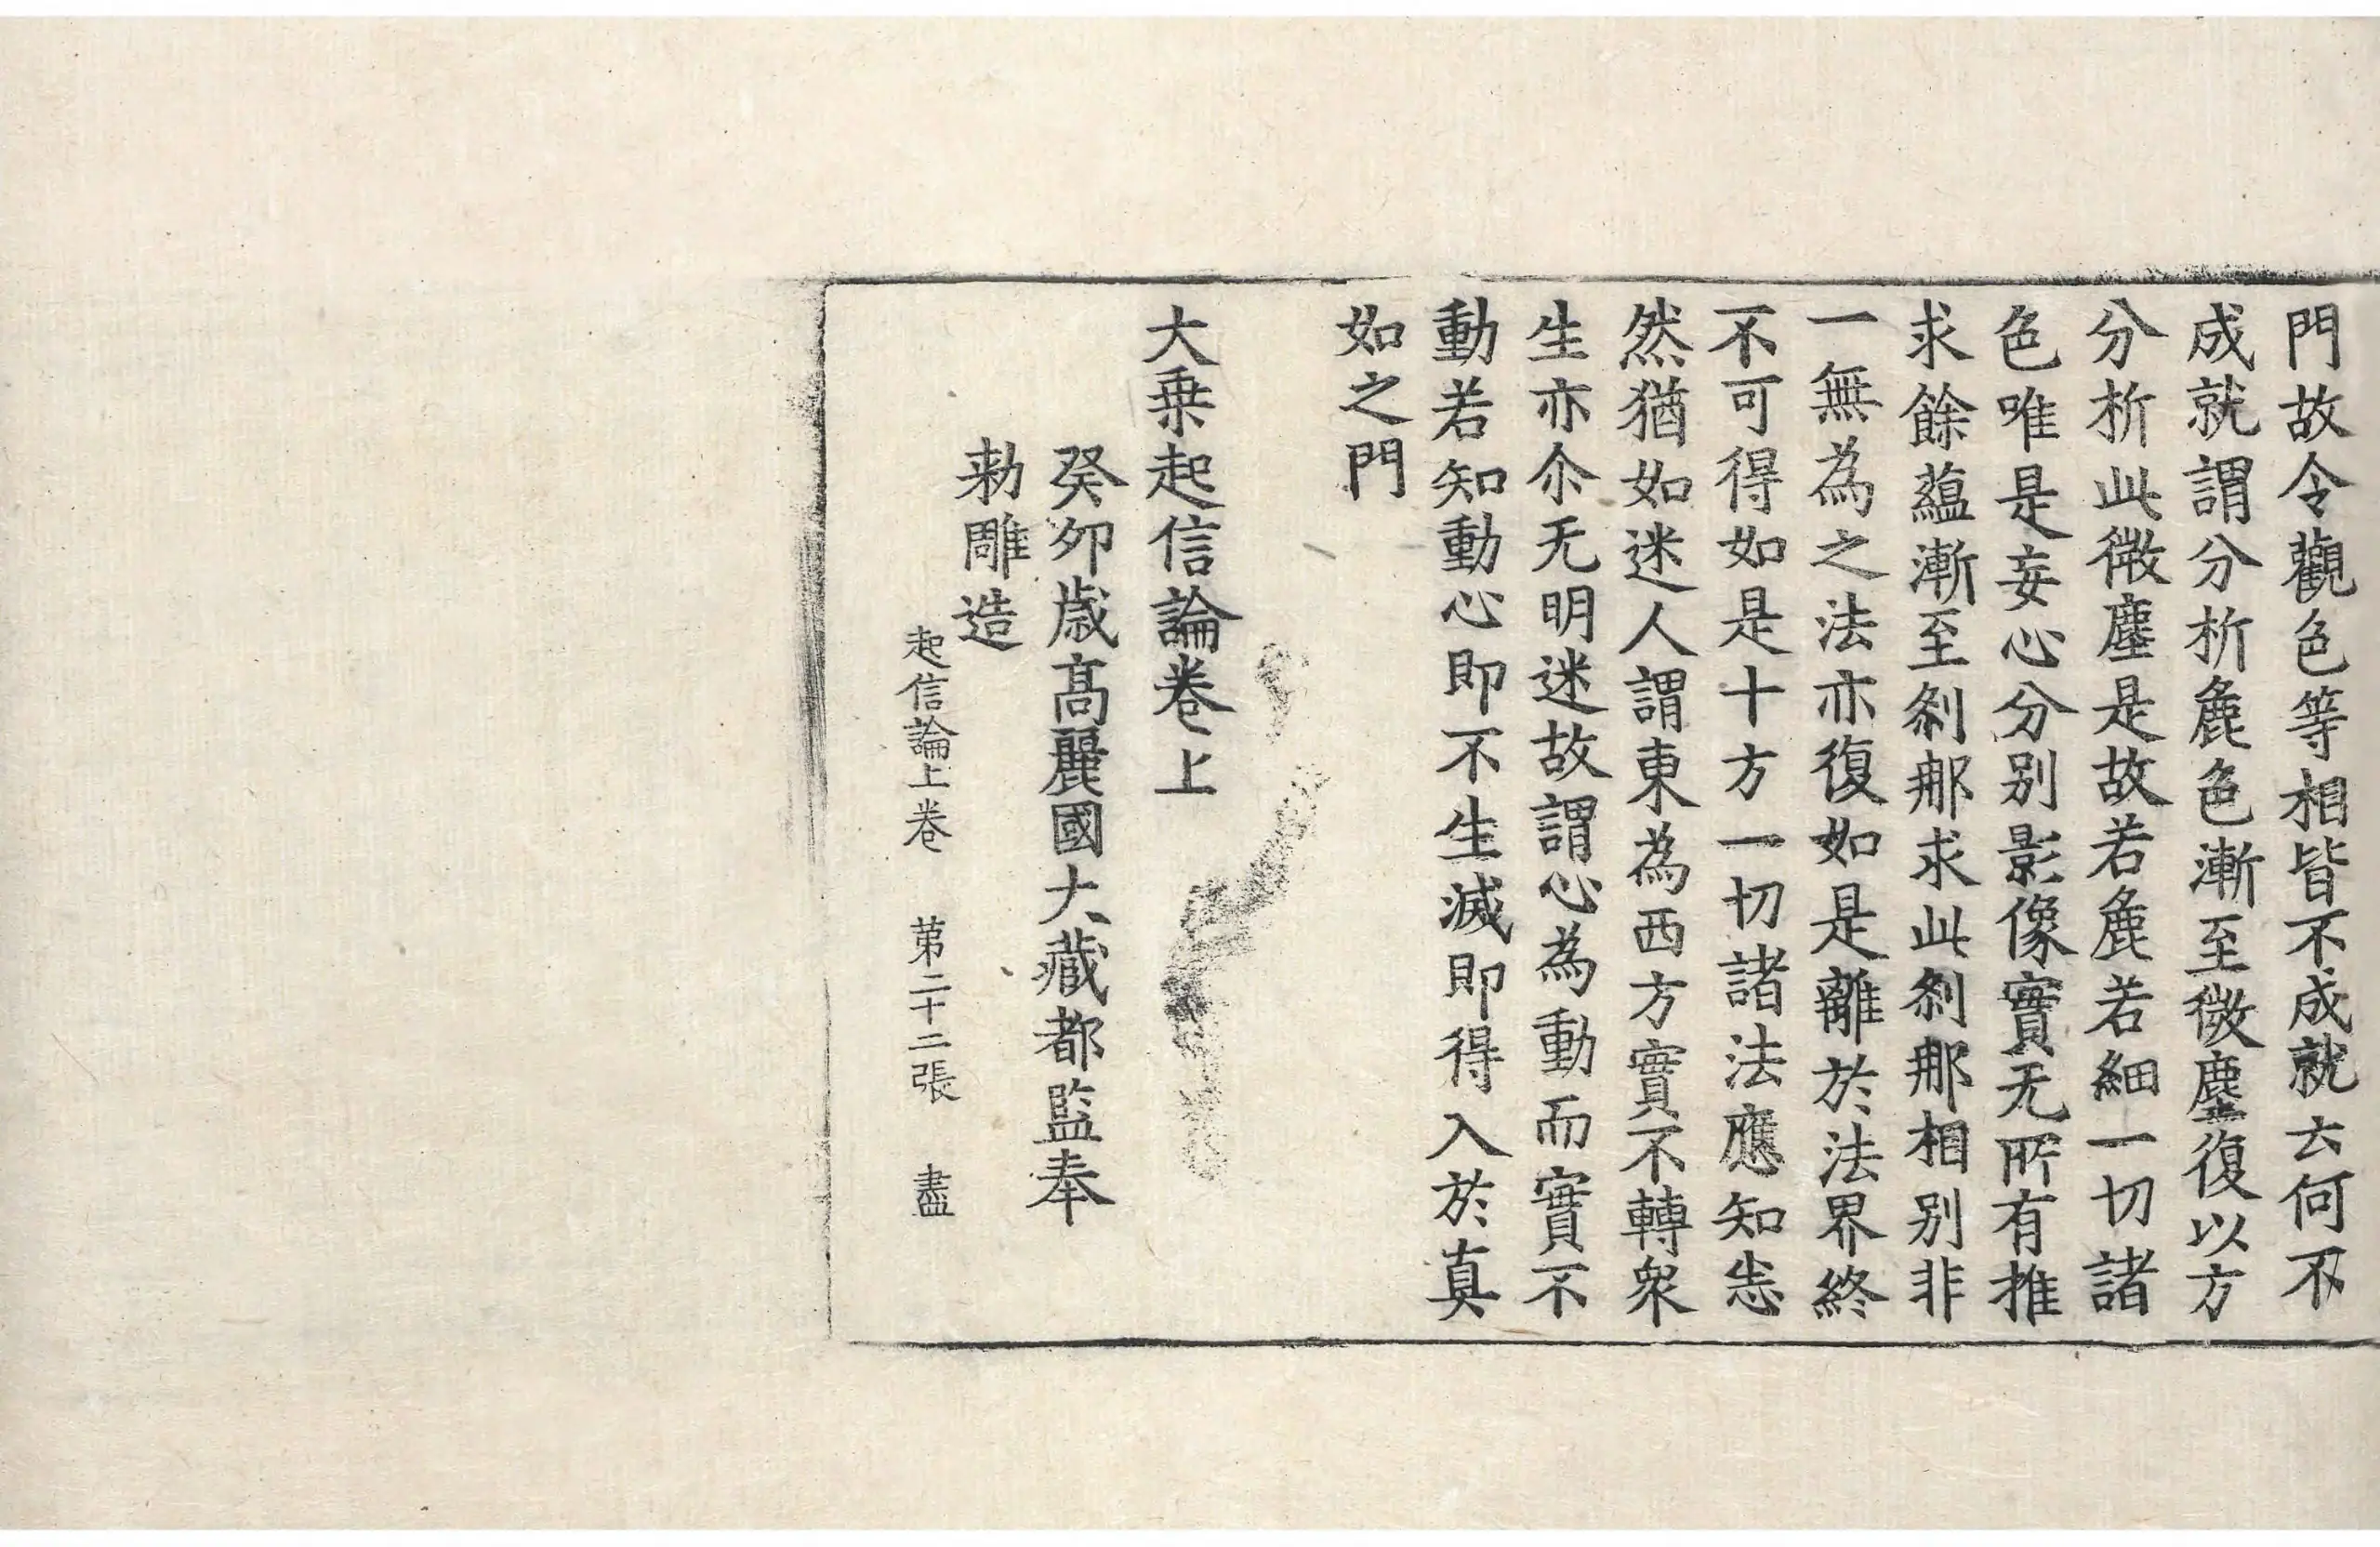 門故令觀色等相皆不成就去何不
成就謂分析麁色漸至微塵復以方
分析此微塵是故若麁若細一切諸
色唯是妄心分别影像實无所有推
求餘蘊漸至刹那求此刹那相别非
一無為之法亦復如是離於法界終
不可得如是十方一切諸法應知悉
然猶如迷人謂東為西方實不轉衆
生亦尒无明迷故謂心為動而實不
動若知動心即不生滅即得入於真
如之門
大乗起信論卷上
癸卯歳髙麗國大藏都監奉
勑雕造
起信論上卷 苐二十二張 盡